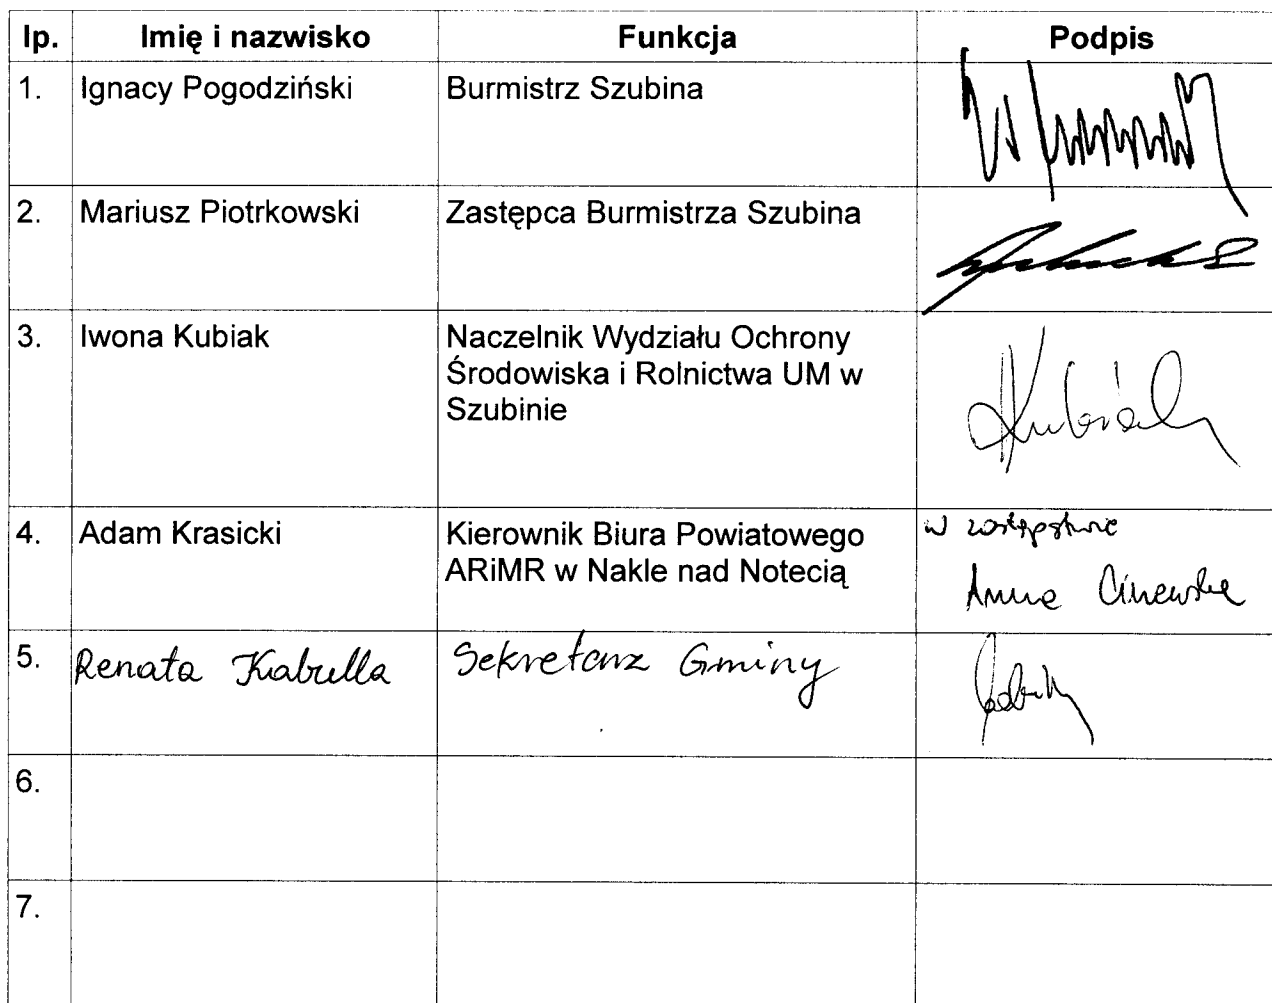 lp. Imię i nazwisko Funkcja Podpis
1. Ignacy Pogodziński Burmistrz Szubina
2. Mariusz Piotrkowski Zastępca Burmistrza Szubina
3. Iwona Kubiak Naczelnik Wydziału Ochrony
Środowiska i Rolnictwa UM w
Szubinie
Kubiak
4. Adam Krasicki Kierownik Biura Powiatowego w zastępstwie
ARiMR w Nakle nad Notecią
Anna
5. Renata Kabulla Sekretarz Gminy
6.
7.